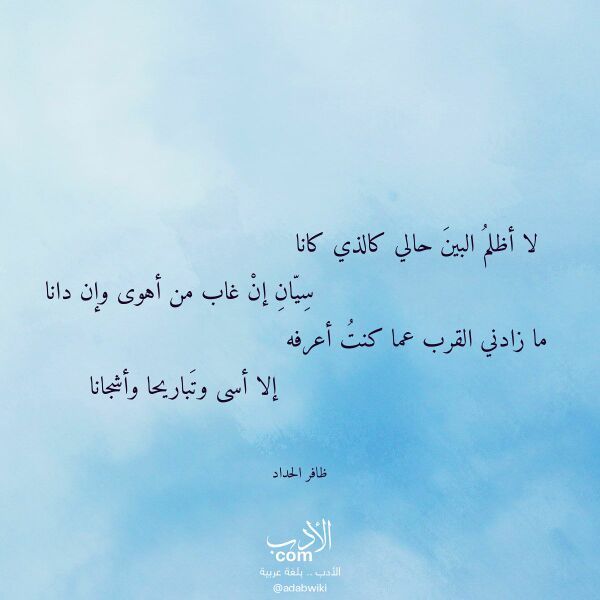 لا أظلمُ البينَ حالي كالذي كانا
سِيّانِ إنْ غاب من أهوى وإن دانا
ما زادني القرب عما كنتُ أعرفه
إلا أسى وتَباريحا وأشجانا
ظافر الحداد
الأدب
com
الأدب .. بلغة عربية
@adabwiki